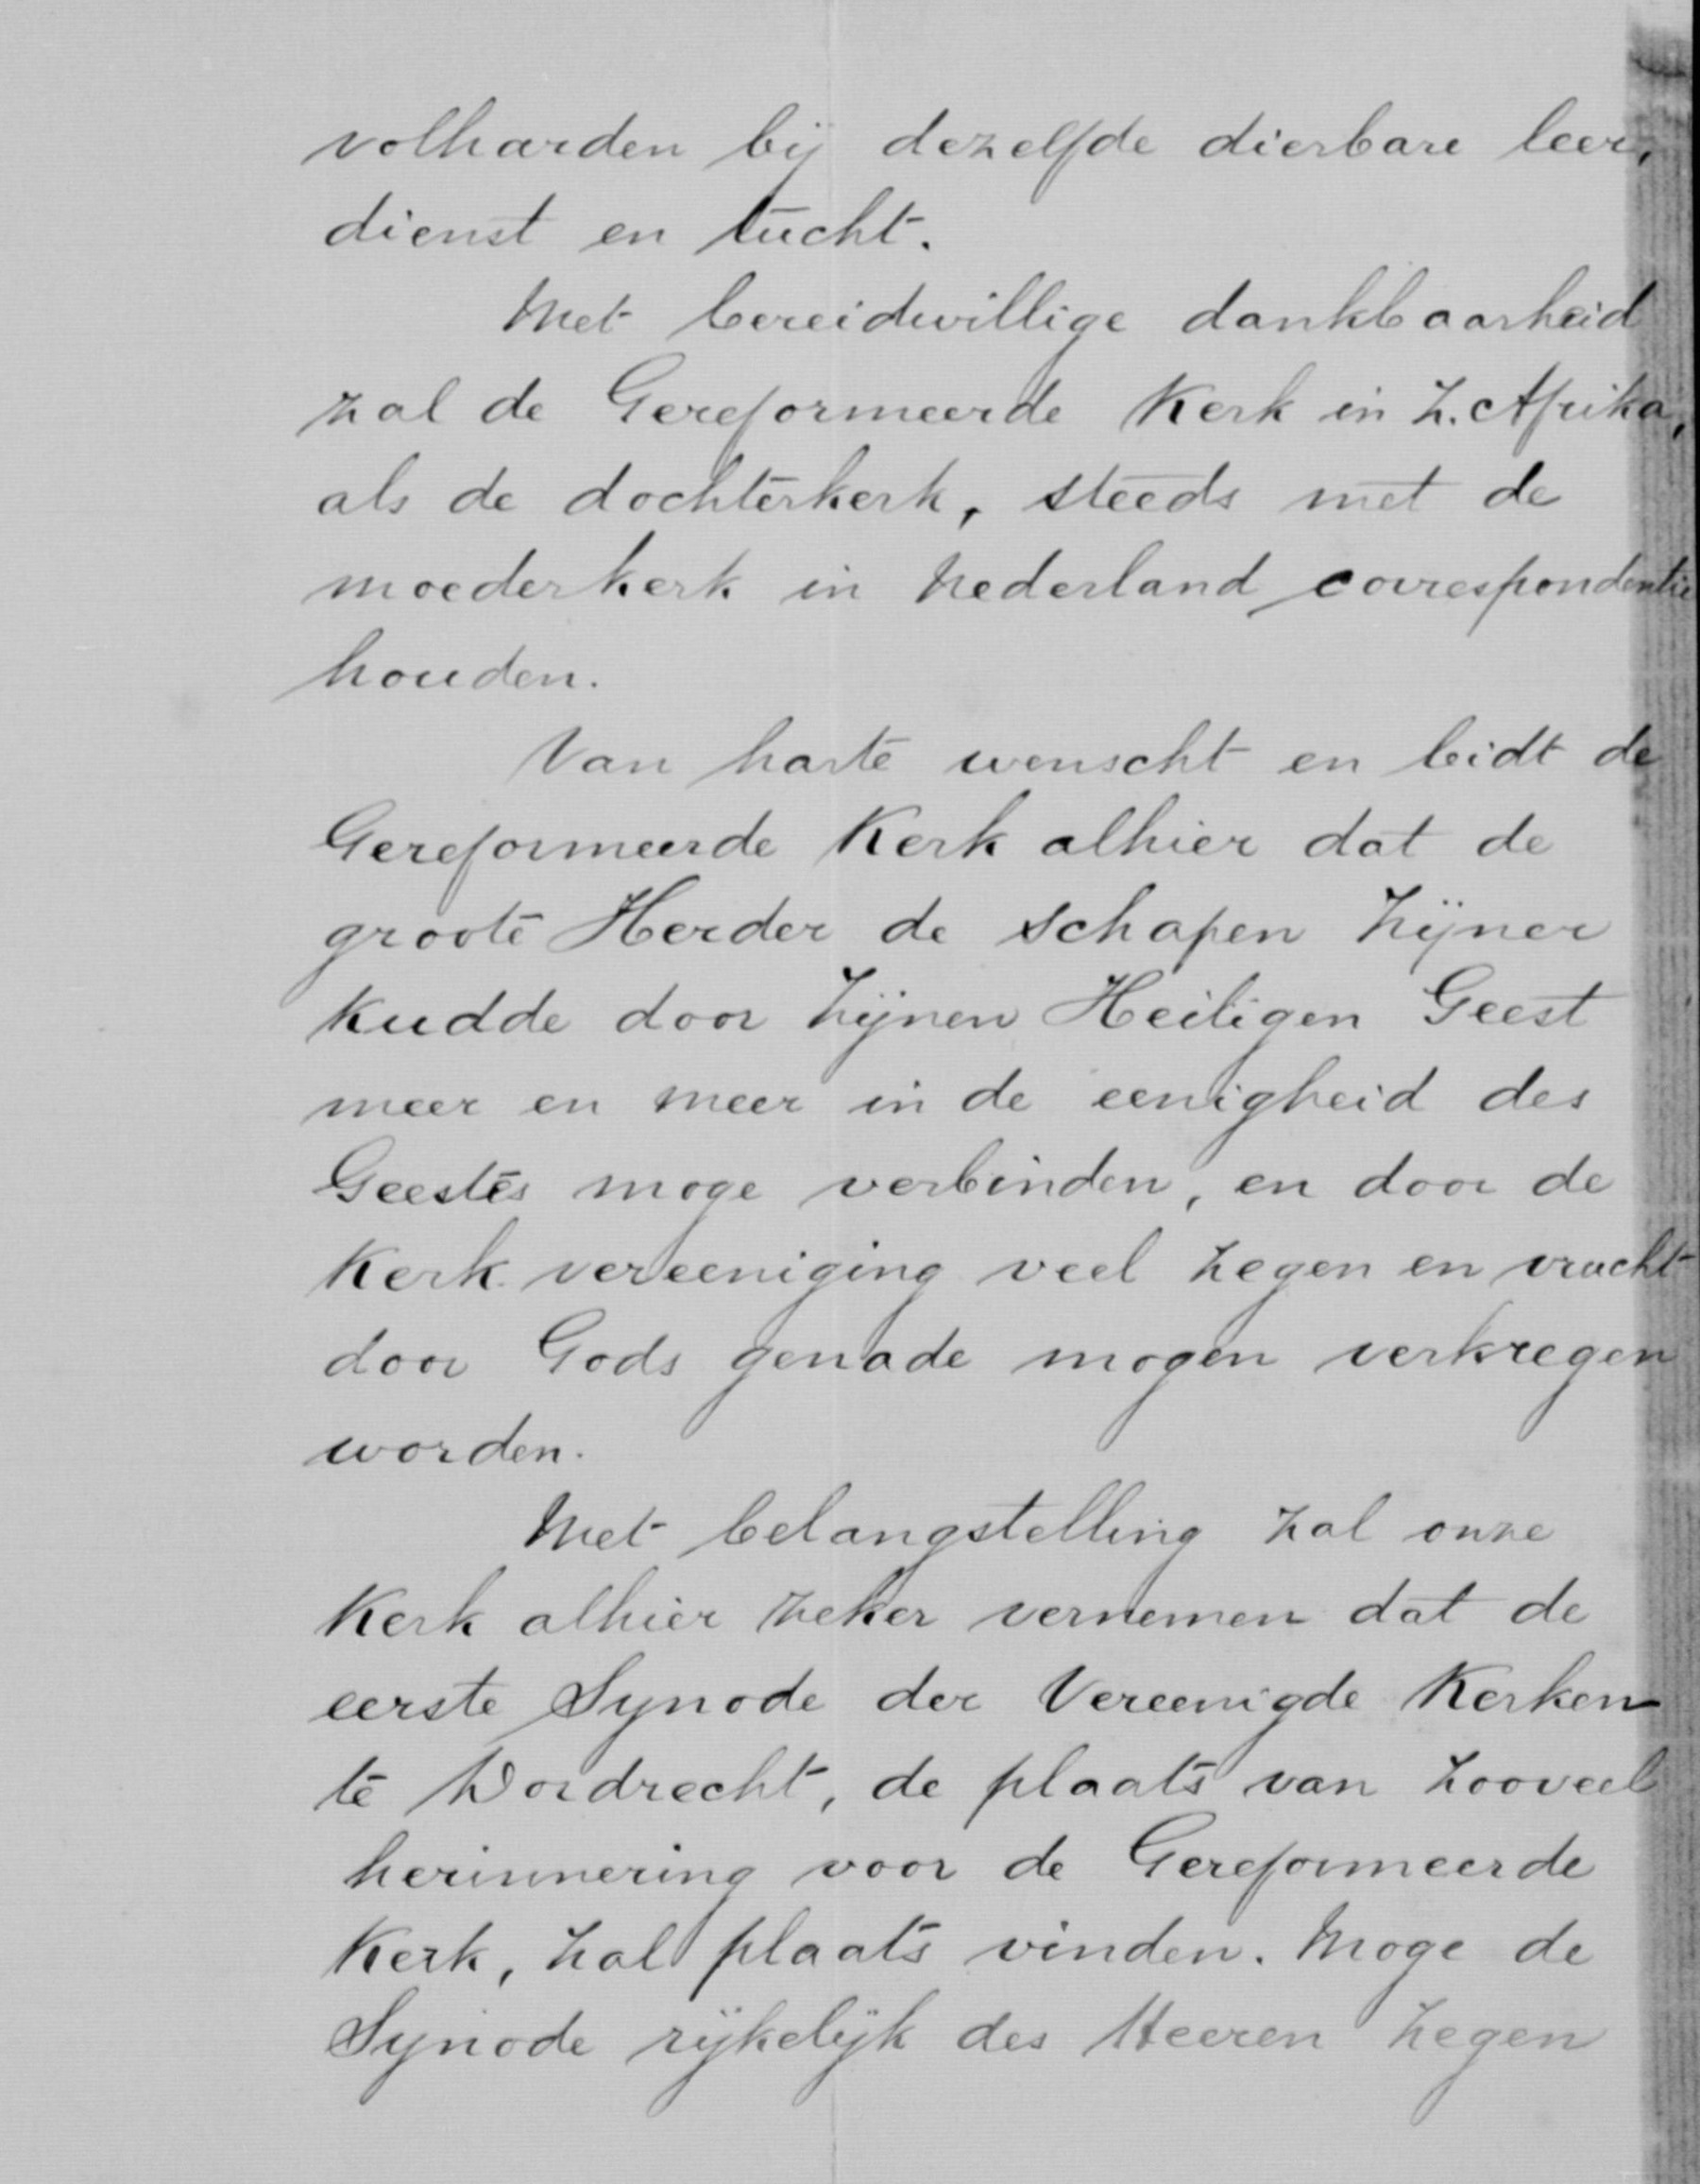 volharden bij dezelfde dierbare leer,
dienst en tucht.
Met bereidwillige dankbaarheid
zal de Gereformeerde Kerk in Z. Afrika,
als de dochterkerk, steeds met de
moederkerk in Nederland correspondentie
houden.
Van harte wenscht en bidt de
Gereformeerde Kerk alhier dat de
groote Herder de schapen Zijner
kudde door Zijnen Heiligen Geest
meer en meer in de eenigheid des
Geestes moge verbinden, en door de
Kerk vereeniging veel zegen en vrucht
door Gods genade mogen verkregen
worden.
Met belangstelling zal onze
Kerk alhier zeker vernemen dat de
eerste Synode der Vereenigde Kerken
te Dordrecht, de plaats van zooveel
herinnering voor de Gereformeerde
Kerk, zal plaats vinden. Moge de
Synode rijkelijk des Heeren zegen